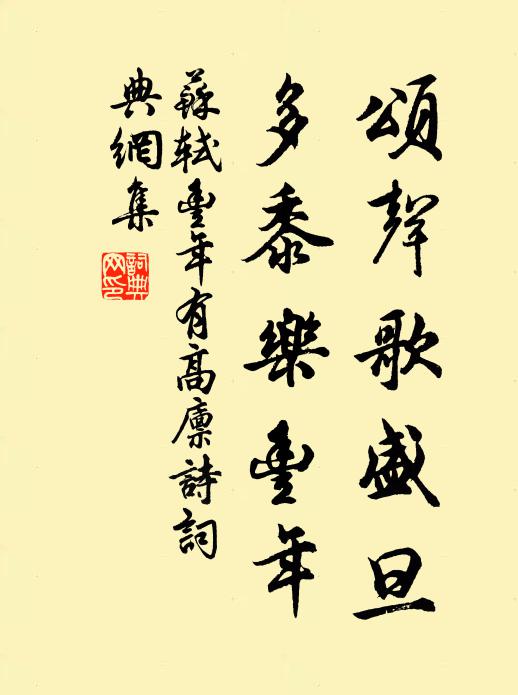 頌聲歌盛旦
多黍樂豐年
蘇軾豐年有高廩詩詞
典網集
詞典
网印